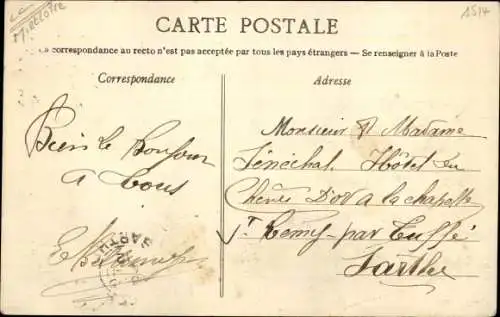 MIRECOTE
1514
CARTE POSTALE
La correspondance au recto n'est pas acceptée par tous les pays étrangers — Se renseigner à la Poste
Correspondance
Adresse
Bien le Bonjour
a tous
Monsieur & Madame
Sénéchal. Hôtel du
Cheval D'or a la chapelle
St Remy-par Tuffé
Sarthe
SARTHE